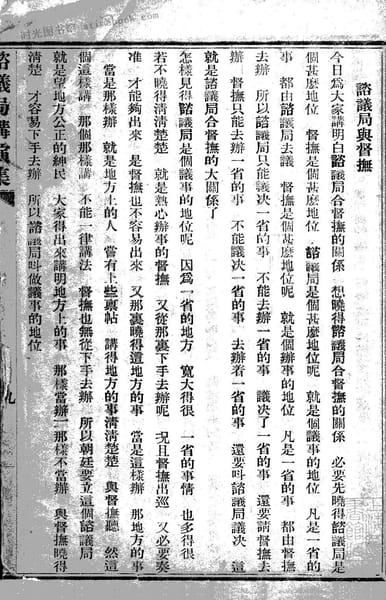 諮議局與督撫
今日爲大家講明白諮議局合督撫的關係 想曉得諮議局合督撫的關係 必要先曉得諮議局是
個甚麽地位 督撫是個甚麽地位 諮議局是個甚麽地位呢 就是個議事的地位 凡是一省的
事 都由諮議局去議 督撫是個甚麽地位呢 就是個辦事的地位 凡是一省的事 都由督撫
去辦 所以諮議局只能議决一省的事 不能去辦一省的事 議决了一省的事 還要請督撫去
辦 督撫只能去辦一省的事 不能議决一省的事 去辦着一省的事 還要呌諮議局議决 這
就是諮議局合督撫的大關係了
怎樣見得諮議局是個議事的地位呢 因爲一省的地方 寬大得很 一省的事情 也多得很
若不曉得清清楚楚 就是熱心辦事的督撫 又從那裏下手去辦呢 况且督撫出巡 又必要奏
准 才能夠出來 是督撫也不容易出來 又那裏曉得這地方的事 當是這樣辦 那地方的事
當是那樣辦 就是地方上的人 嘗有上些稟帖 講得地方的事清清楚楚 與督撫聽 然這
個這樣講 那個那樣講 不能一律講法 督撫也無從下手去辦 所以朝廷要立這個諮議局
就是望地方公正的紳民 大家得出來講明地方上的事 那樣當辦 那樣不當辦 與督撫曉得
清楚 才容易下手去辦 所以諮議局呌做議事的地位
諮議局講演集
九